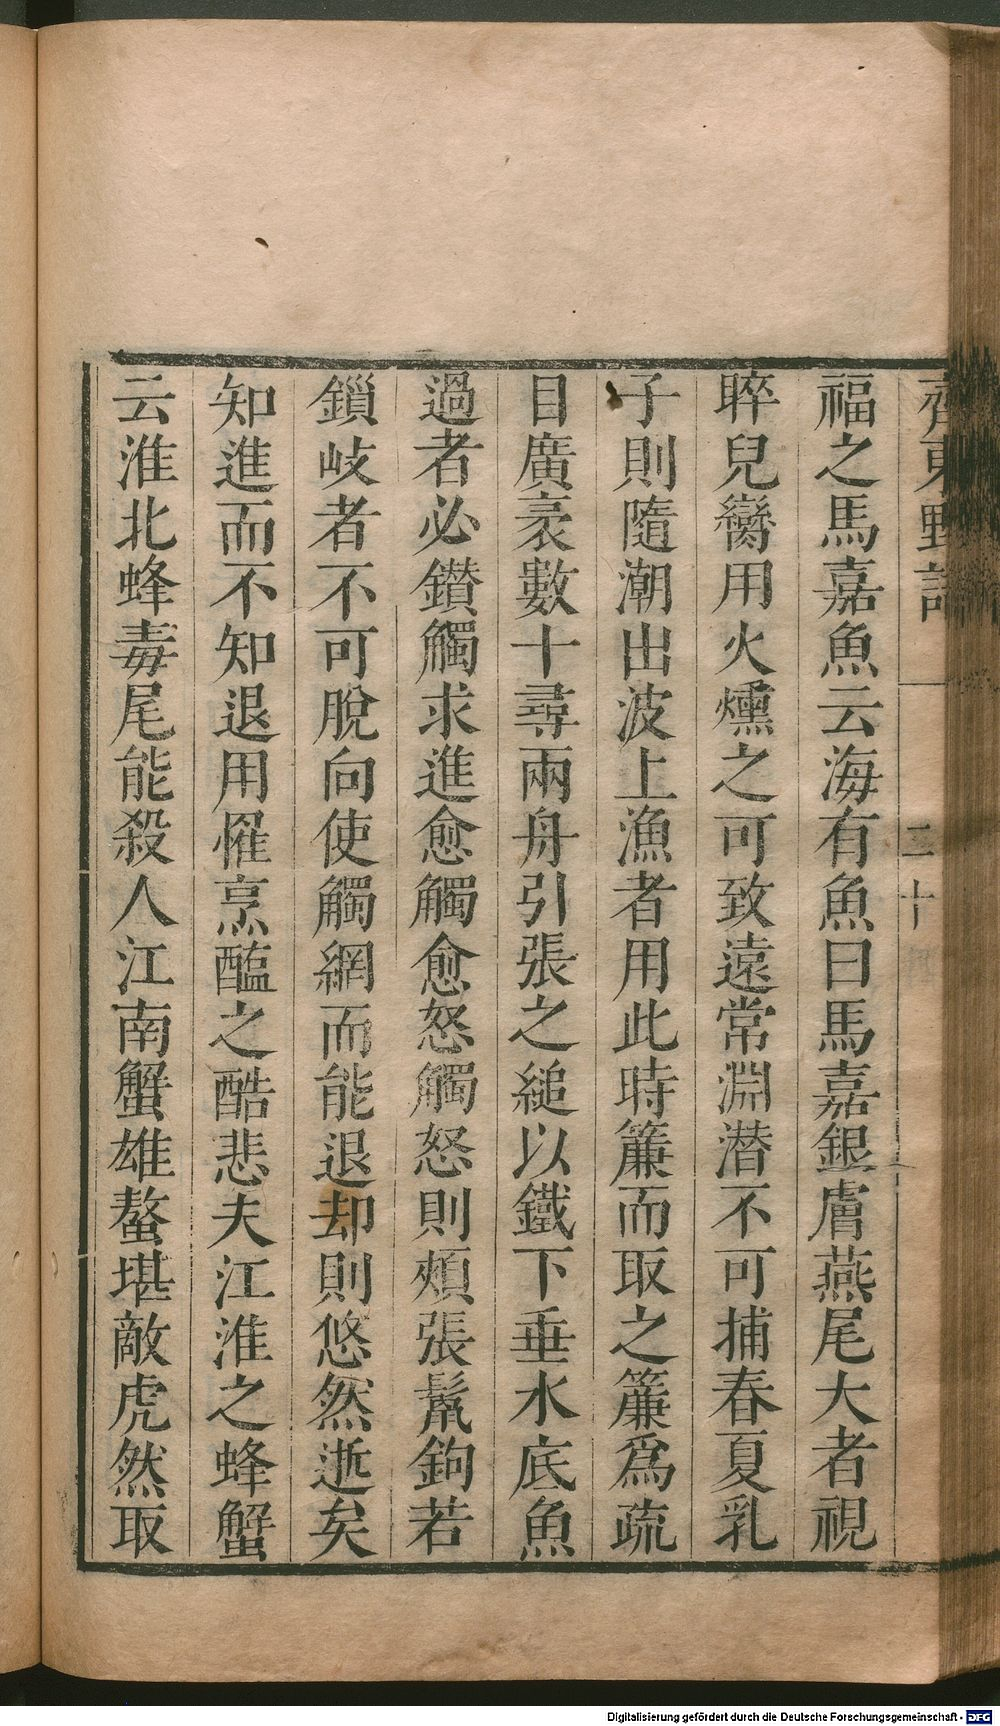 齊東野語
二十
福之馬嘉魚云海有魚曰馬嘉銀膚燕尾大者視
睟兒臠用火燻之可致遠常淵潜不可捕春夏乳
子則隨潮出波上漁者用此時簾而取之簾爲疏
目廣袤數十尋兩舟引張之縋以鐵下垂水底魚
過者必鑽觸求進愈觸愈怒觸怒則頰張鬣鉤若
鎖岐者不可脫向使觸網而能退却則悠然逝矣
知進而不知退用罹烹醢之酷悲夫江淮之蜂蟹
云淮北蜂毒尾能殺人江南蟹雄螯堪敵虎然取
Digitalisierung gefördert durch die Deutsche Forschungsgemeinschaft - DFG